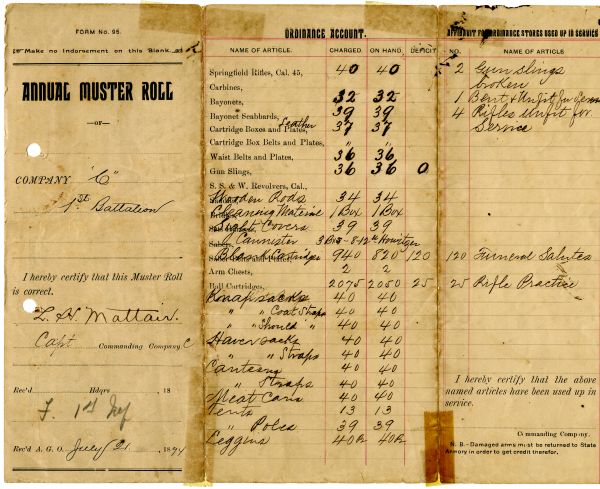 FORM No. 95.
Make no Indorsement on this Blank.
ANNUAL MUSTER ROLL
—OF—
COMPANY "C"
1st Battalion
I hereby certify that this Muster Roll
is correct.
L. H. Mattair.
Capt Commanding Company, C
Rec'd Hdqrs. , 18
F. 1st Inf
Rec'd A. G. O. July 21 , 1894
ORDINANCE ACCOUNT.
NAME OF ARTICLE. CHARGED. ON HAND. DEFICIT
Springfield Rifles, Cal. 45, 40 40
Carbines,
Bayonets, 32 32
Bayonet Scabbards, 39 39
Cartridge Boxes and Plates, Leather 37 37
Cartridge Box Belts and Plates, " "
Waist Belts and Plates, 36 36
Gun Slings, 36 36 0
S. S. & W. Revolvers, Cal.,
Wooden Rods 34 34
Cleaning Material 1 Box 1 Box
Sight Covers 39 39
Cannister 3 Bxs - 8 - 12 lb Howitzer
Blank Cartridges 940 820 120
Arm Chests, 2 2
Ball Cartridges, 2075 2050 25
Knapsacks 40 40
" " Coat Straps 40 40
" " Should " 40 40
Haversacks 40 40
" " Straps 40 40
Canteens 40 40
" Straps 40 40
Meat Cans 40 40
Tents 13 13
" Poles 39 39
Leggins 40 Pr 40 Pr
AFFIDAVIT FOR ORDINANCE STORES USED UP IN SERVICE
NO. NAME OF ARTICLE
2 Gun slings
broken
1 Bent & Unfit for
4 Rifles Unfit for
Service
120 Funeral Salutes
25 Rifle Practice
I hereby certify that the above
named articles have been used up in
service.
Commanding Company.
N. B.—Damaged arms must be returned to State
Armory in order to get credit therefor.